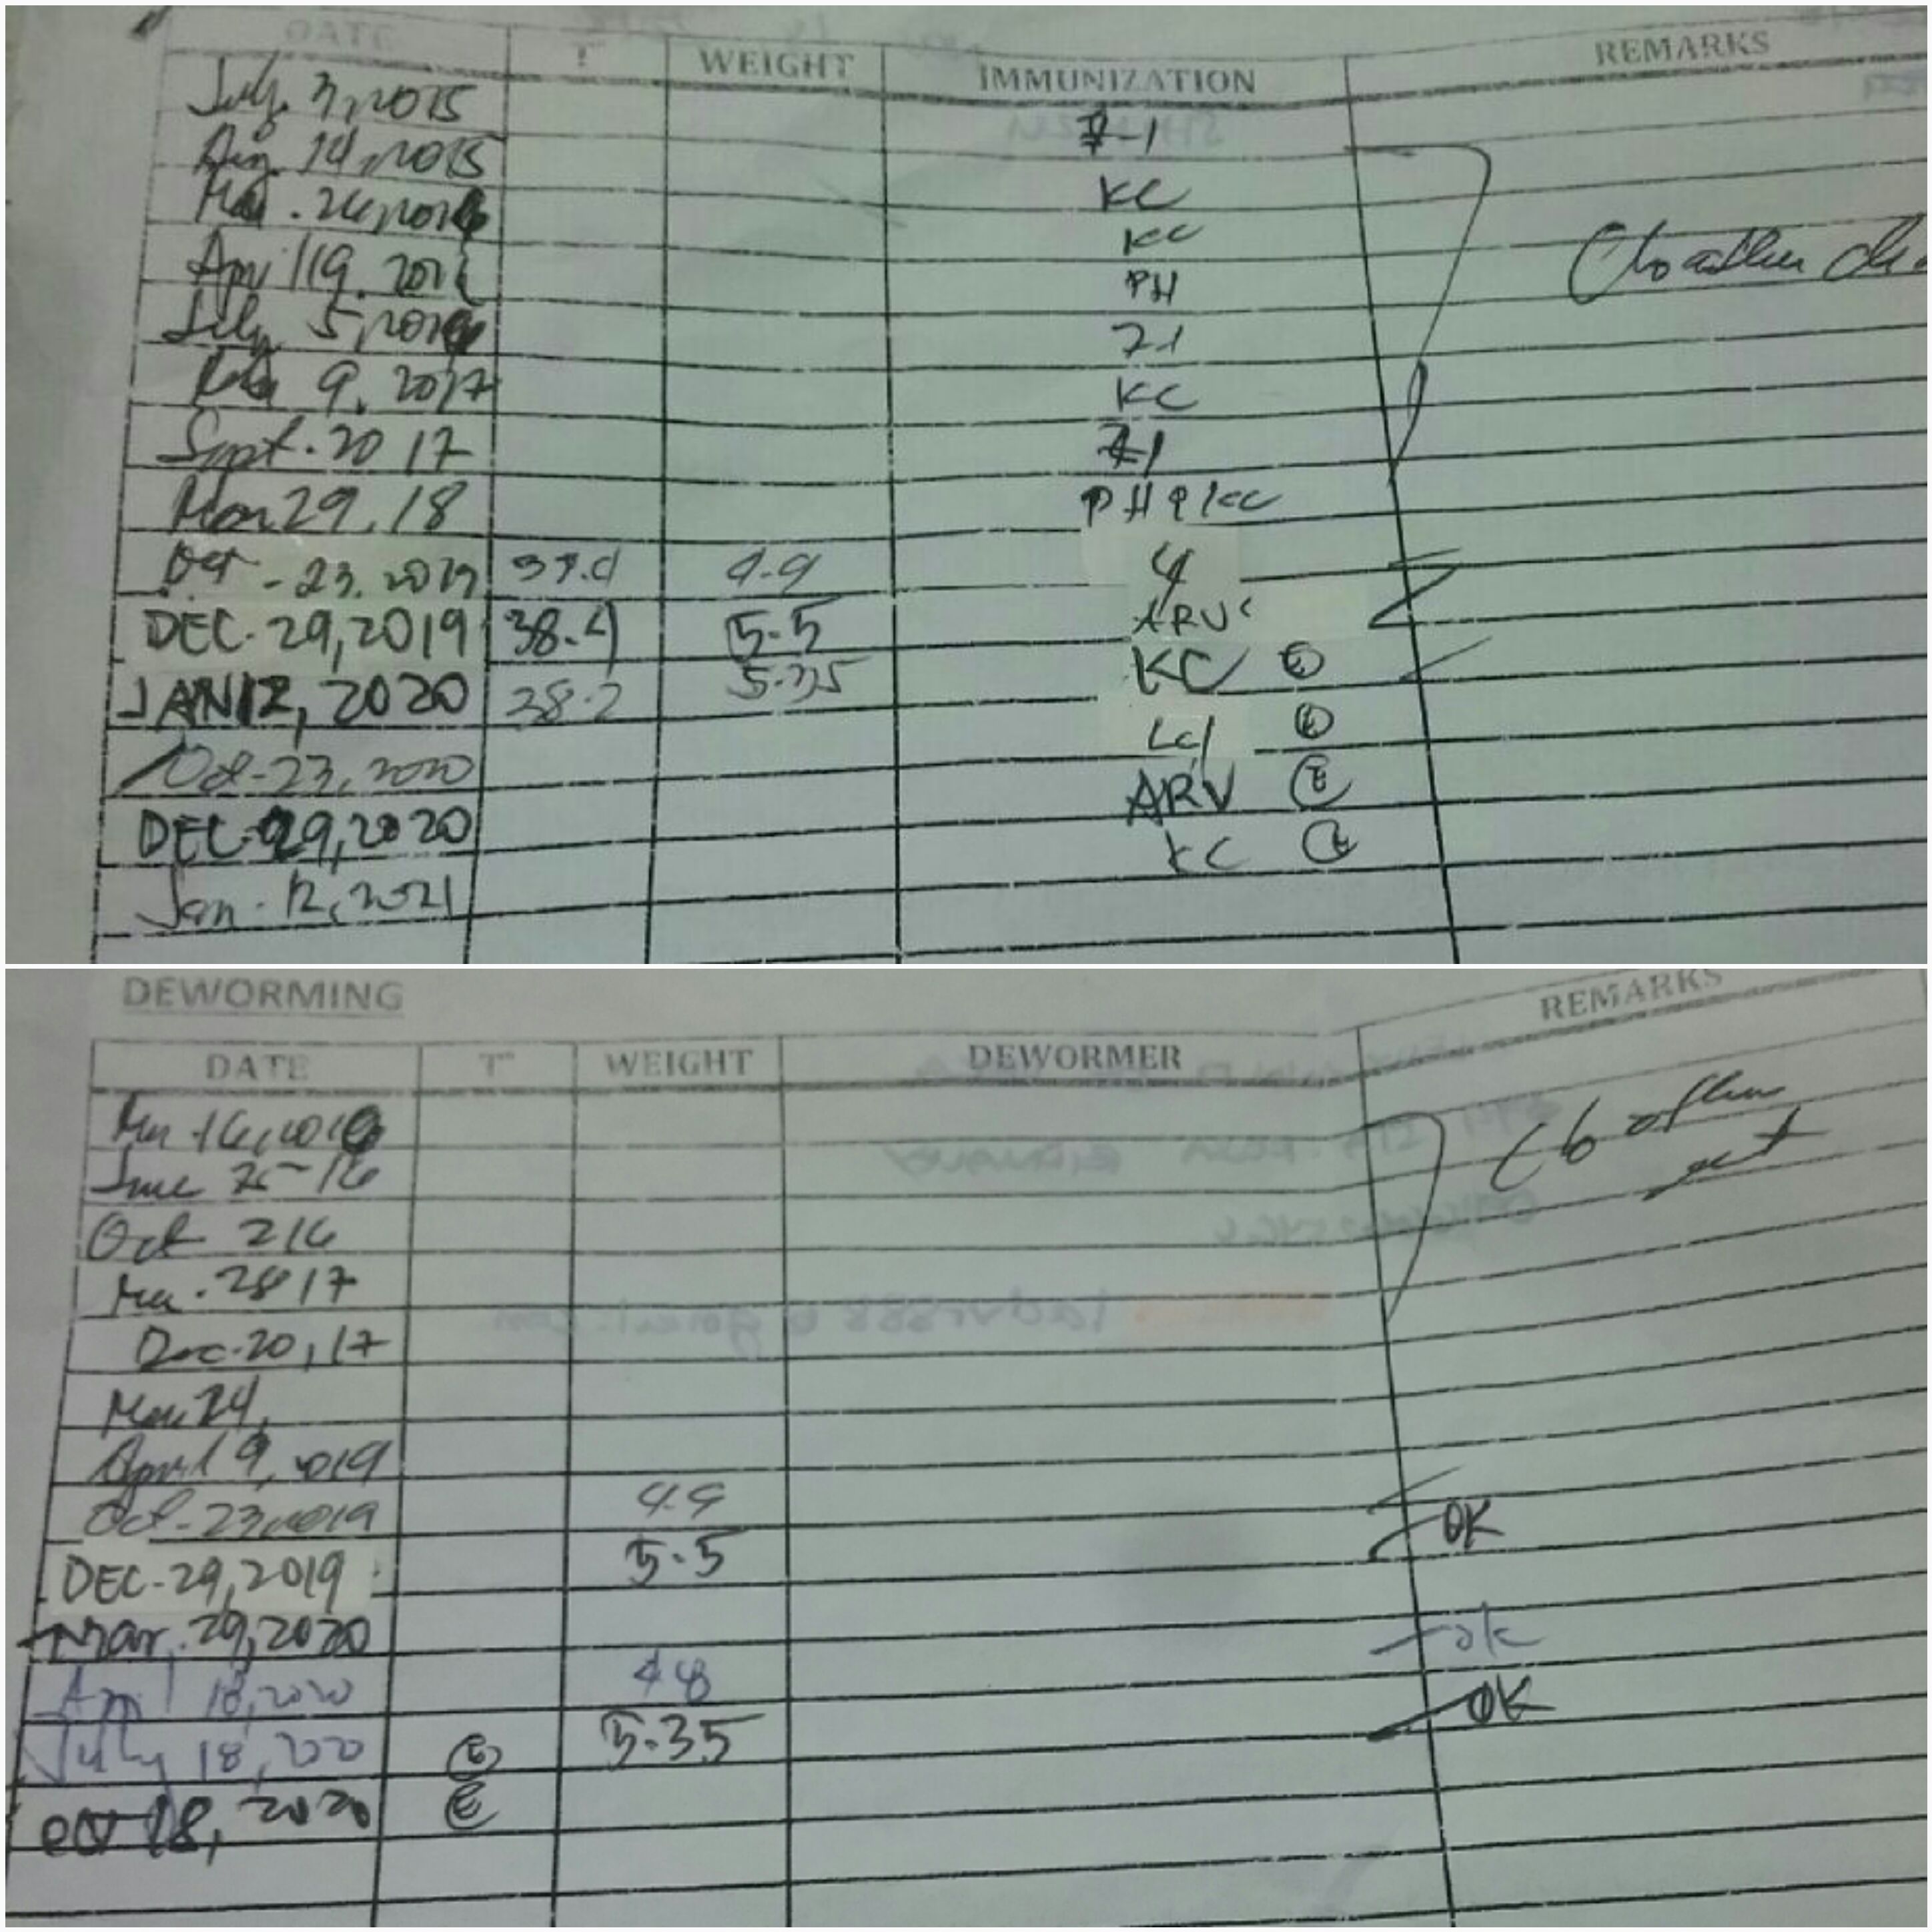 DATE T° WEIGHT IMMUNIZATION REMARKS
July 3, 2015 7-1
Aug 14, 2015 KC
Mar. 26, 2016 KC
April 19, 2016 PH
July 5, 2016 7-1
9, 2017 KC
Sept. 20 17 7-1
Mar 29, 18 PH & KC
Oct - 23, 2019 4.9 4
DEC. 29, 2019 38.4 5.5 ARV
JAN 12, 2020 38.2 5.35 KC E
Oct - 23, 2020 E
DEC. 29, 2020 ARV E
Jan. 12, 2021 KC E
DEWORMING
DATE T° WEIGHT DEWORMER REMARKS
2016
June 25-16
Oct 2 16
Mar. 28 17
Dec. 20, 17
Mar 24,
April 9, 2019
Oct - 23, 2019 4.9
DEC. 29, 2019 5.5 OK
Mar. 29, 2020
April 18, 2020 4.8 ok
July 18, 2020 E 5.35 OK
Oct 18, 2020 E